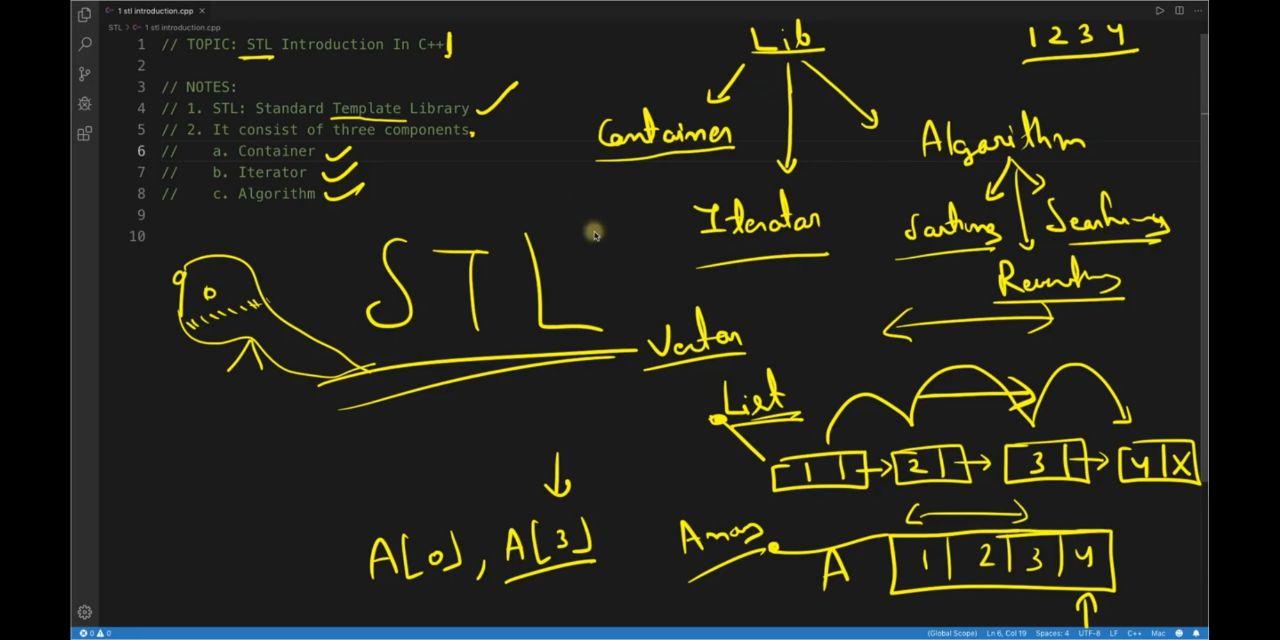 1 stl introduction.cpp
STL > 1 stl introduction.cpp
1 // TOPIC: STL Introduction In C++
2
3 // NOTES:
4 // 1. STL: Standard Template Library
5 // 2. It consist of three components.
6 // a. Container
7 // b. Iterator
8 // c. Algorithm
9
10
Lib
1 2 3 4
Container
Algorithm
Iterator
Sorting
Searching
STL
Vector
List
1 2 3 4 X
A[0], A[3]
Array
A
1 2 3 4
0 0
(Global Scope) Ln 6, Col 19 Spaces: 4 UTF-8 LF C++ Mac